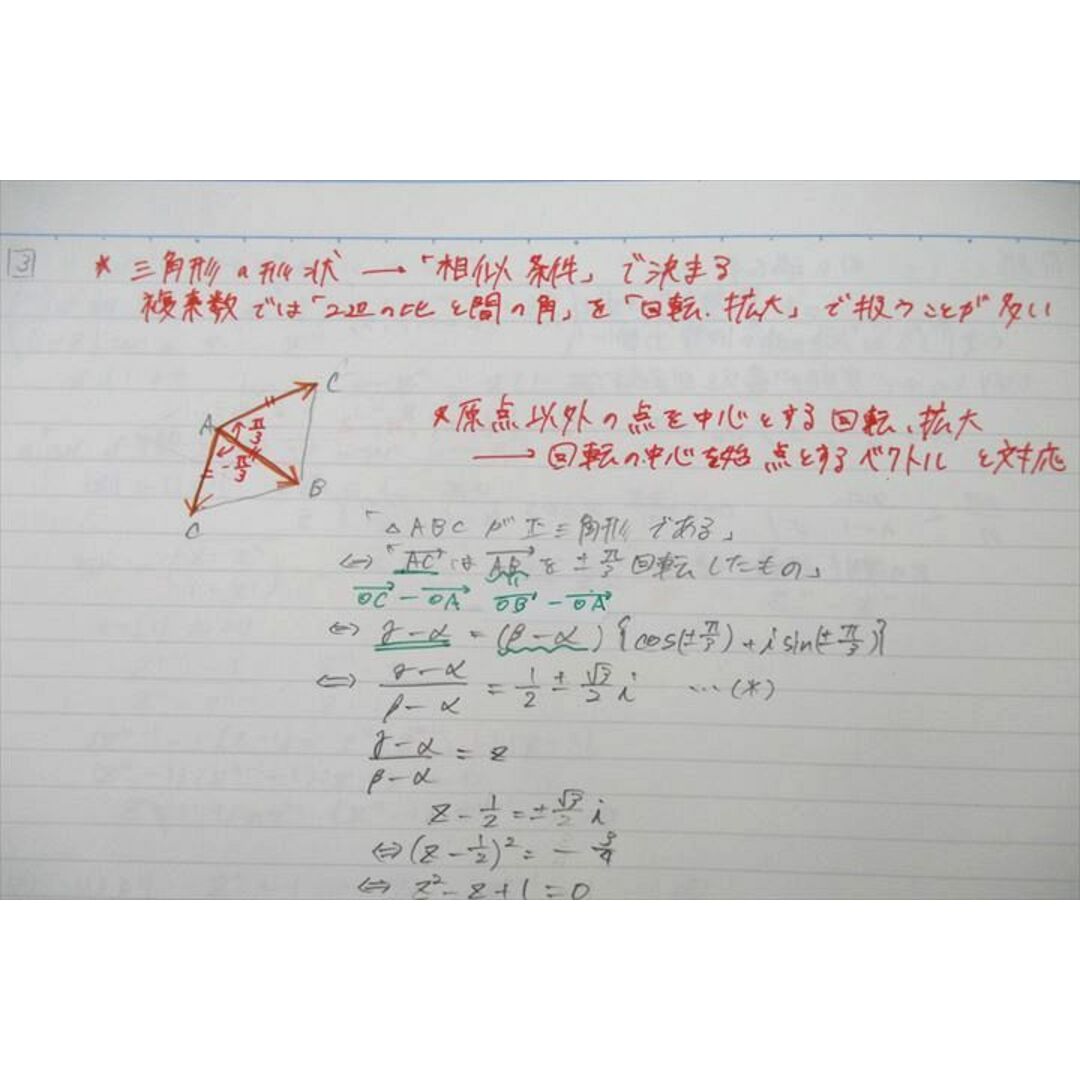 3
* 三角形の形状 → 「相似条件」で決まる
複素数では「2辺の比と間の角」を「回転、拡大」で扱うことが多い
C
A π/3
-π/3
B
C
* 原点以外の点を中心とする回転、拡大
→ 回転の中心を始点とするベクトルと対応
「△ABCが正三角形である」
⇔「AC→はAB→を±π/3回転したもの」
OC→ - OA→ OB→ - OA→
⇔ γ-α = (β-α){cos(±π/3)+i sin(±π/3)}
⇔ (γ-α)/(β-α) = 1/2 ± √3/2 i …(*)
(γ-α)/(β-α) = z
z - 1/2 = ± √3/2 i
⇔ (z - 1/2)² = - 3/4
⇔ z² - z + 1 = 0